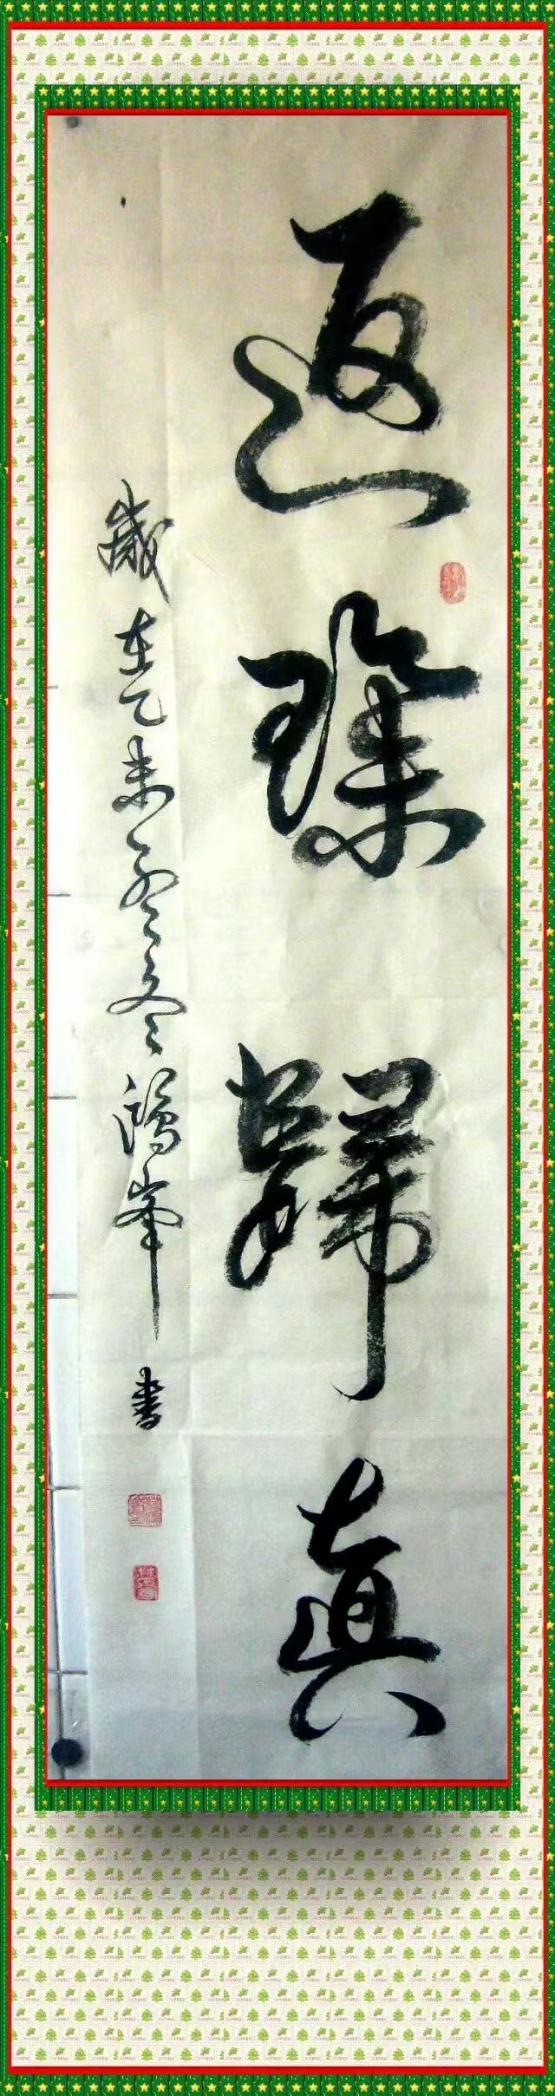 返璞歸真
歲在乙未 鴻峯書